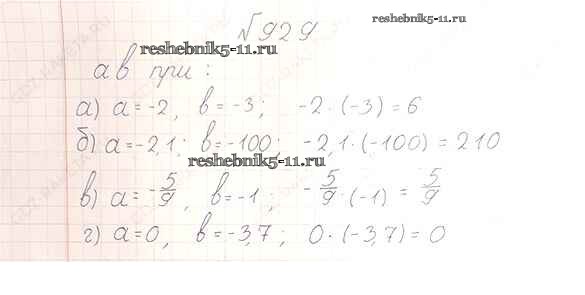 №929
reshebnik5-11.ru
reshebnik5-11.ru
ав при:
а) а=-2, в=-3; -2·(-3)=6
б) а=-2,1; в=-100; -2,1·(-100)=210
reshebnik5-11.ru
в) а=-5/9, в=-1; -5/9·(-1)=5/9
г) а=0, в=-3,7; 0·(-3,7)=0